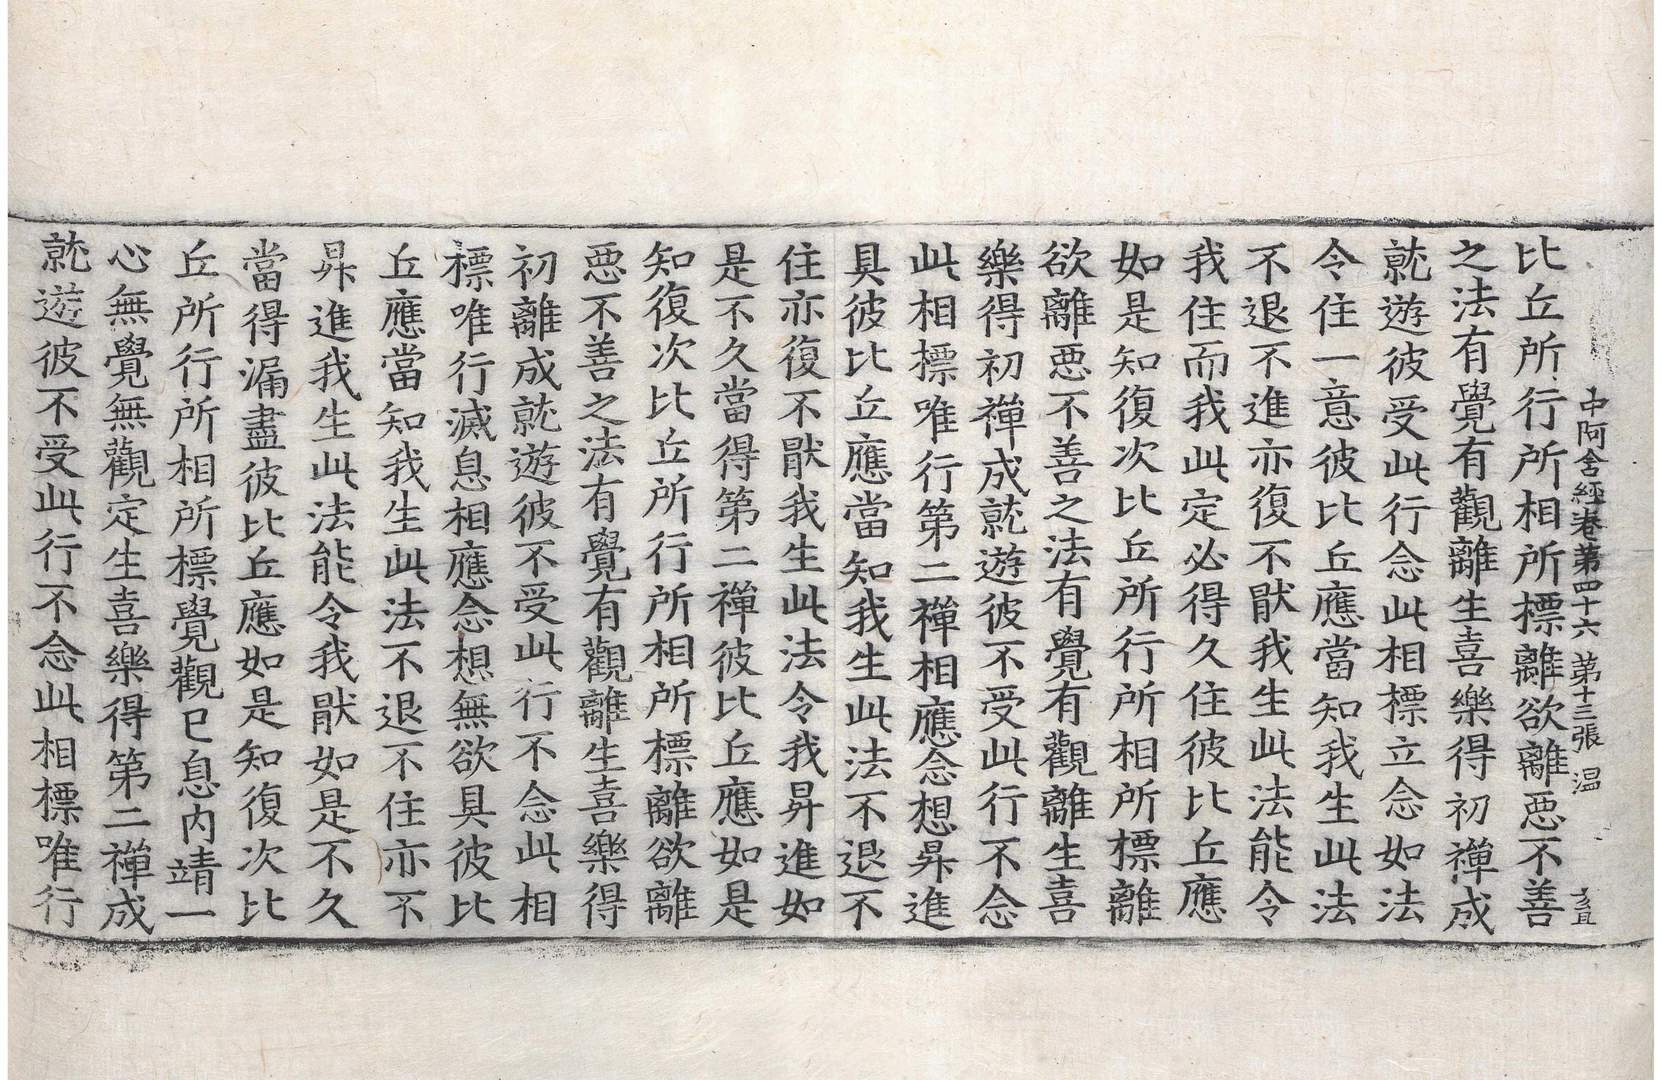 中阿含經卷第四十六 第十三張 温
比丘所行所相所標離欲離惡不善
之法有覺有觀離生喜樂得初禪成
就遊彼受此行念此相標立念如法
令住一意彼比丘應當知我生此法
不退不進亦復不猒我生此法能令
我住而我此定必得久住彼比丘應
如是知復次比丘所行所相所標離
欲離惡不善之法有覺有觀離生喜
樂得初禪成就遊彼不受此行不念
此相標唯行第二禪相應念想昇進
具彼比丘應當知我生此法不退不
住亦復不猒我生此法令我昇進如
是不久當得第二禪彼比丘應如是
知復次比丘所行所相所標離欲離
惡不善之法有覺有觀離生喜樂得
初離成就遊彼不受此行不念此相
標唯行滅息相應念想無欲具彼比
丘應當知我生此法不退不住亦不
昇進我生此法能令我猒如是不久
當得漏盡彼比丘應如是知復次比
丘所行所相所標覺觀已息內靖一
心無覺無觀定生喜樂得第二禪成
就遊彼不受此行不念此相標唯行